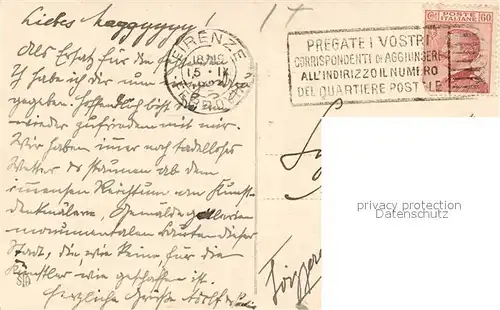 Liebes Maggyyyy!
Als Ersatz für den
Ich habe ich dir
gegeben. Hoffentlich bist du
wieder zufrieden mit mir.
Wir haben immer noch tadelloses
Wetter & staunen ob dem
immensen Reichtum an Kunst-
denkmälern, Gemäldegallerien
monumentalen Bauten dieser
Stadt, die, wie keine für die
Künstler wie geschaffen ist.
Herzliche Grüsse Adolf &
FIRENZE
15 · IX
PREGATE I VOSTRI
CORRISPONDENTI DI AGGIUNGERE
ALL'INDIRIZZO IL NUMERO
DEL QUARTIERE POSTALE
POSTE
ITALIANE
60
privatsammlungen
PAYER.DE